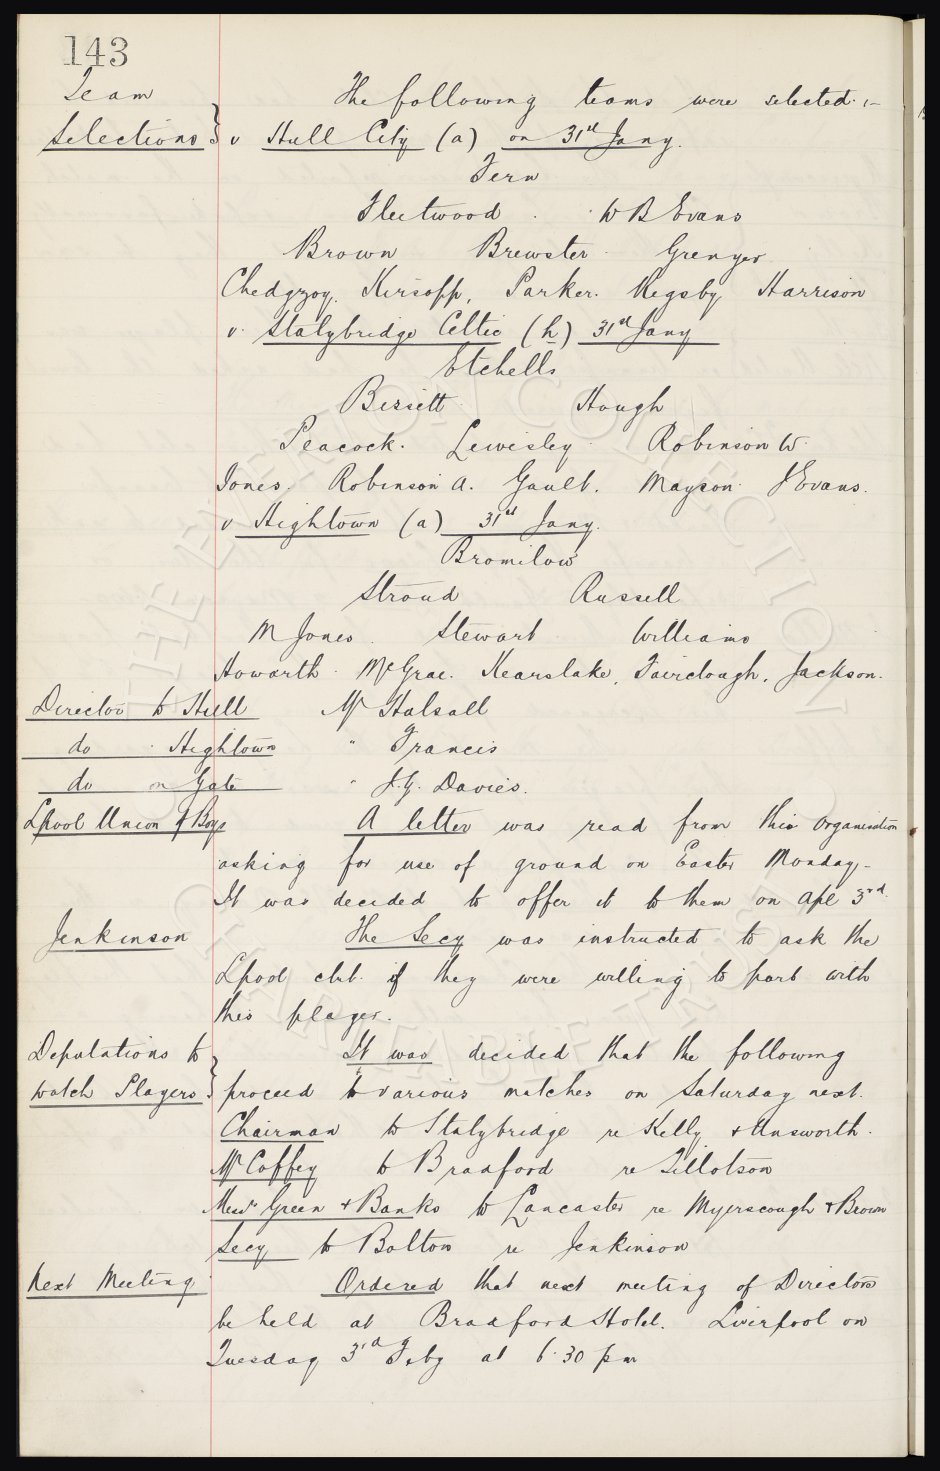 143
Team
Selections } The following teams were selected :-
v Hull City (a) on 31st Jany.
Fern
Fleetwood . W B Evans
Brown Brewster Grenyer
Chedgzoy. Kirsopp, Parker. Rigsby Harrison
v. Stalybridge Celtic (h) 31st Jany
Etchells
Bissett Hough
Peacock. Lewisley Robinson W.
Jones. Robinson A. Gault. Mayson J Evans.
v Hightown (a) 31st Jany.
Bromilow
Stroud Russell
M Jones. Stewart Williams
Howarth. McGrae. Kearslake, Fairclough, Jackson.
Director to Hull Mr Halsall
do . Hightown " Francis
do on Gate " J.G. Davies.
Lpool Union of Boys A letter was read from this organisation
asking for use of ground on Easter Monday-
It was decided to offer it to them on Apl 3rd.
Jenkinson The Secy was instructed to ask the
Lpool club if they were willing to part with
this player.
Deputations to It was decided that the following
watch Players } proceed to various matches on Saturday next.
Chairman to Stalybridge re Kelly & Unsworth.
Mr Coffey to Bradford re Tillotson
Messrs Green & Banks to Lancaster re Myerscough & Brown
Secy to Bolton re Jenkinson
Next Meeting Ordered that next meeting of Directors
be held at Bradford Hotel. Liverpool on
Tuesday 3rd Feby at 6.30 pm